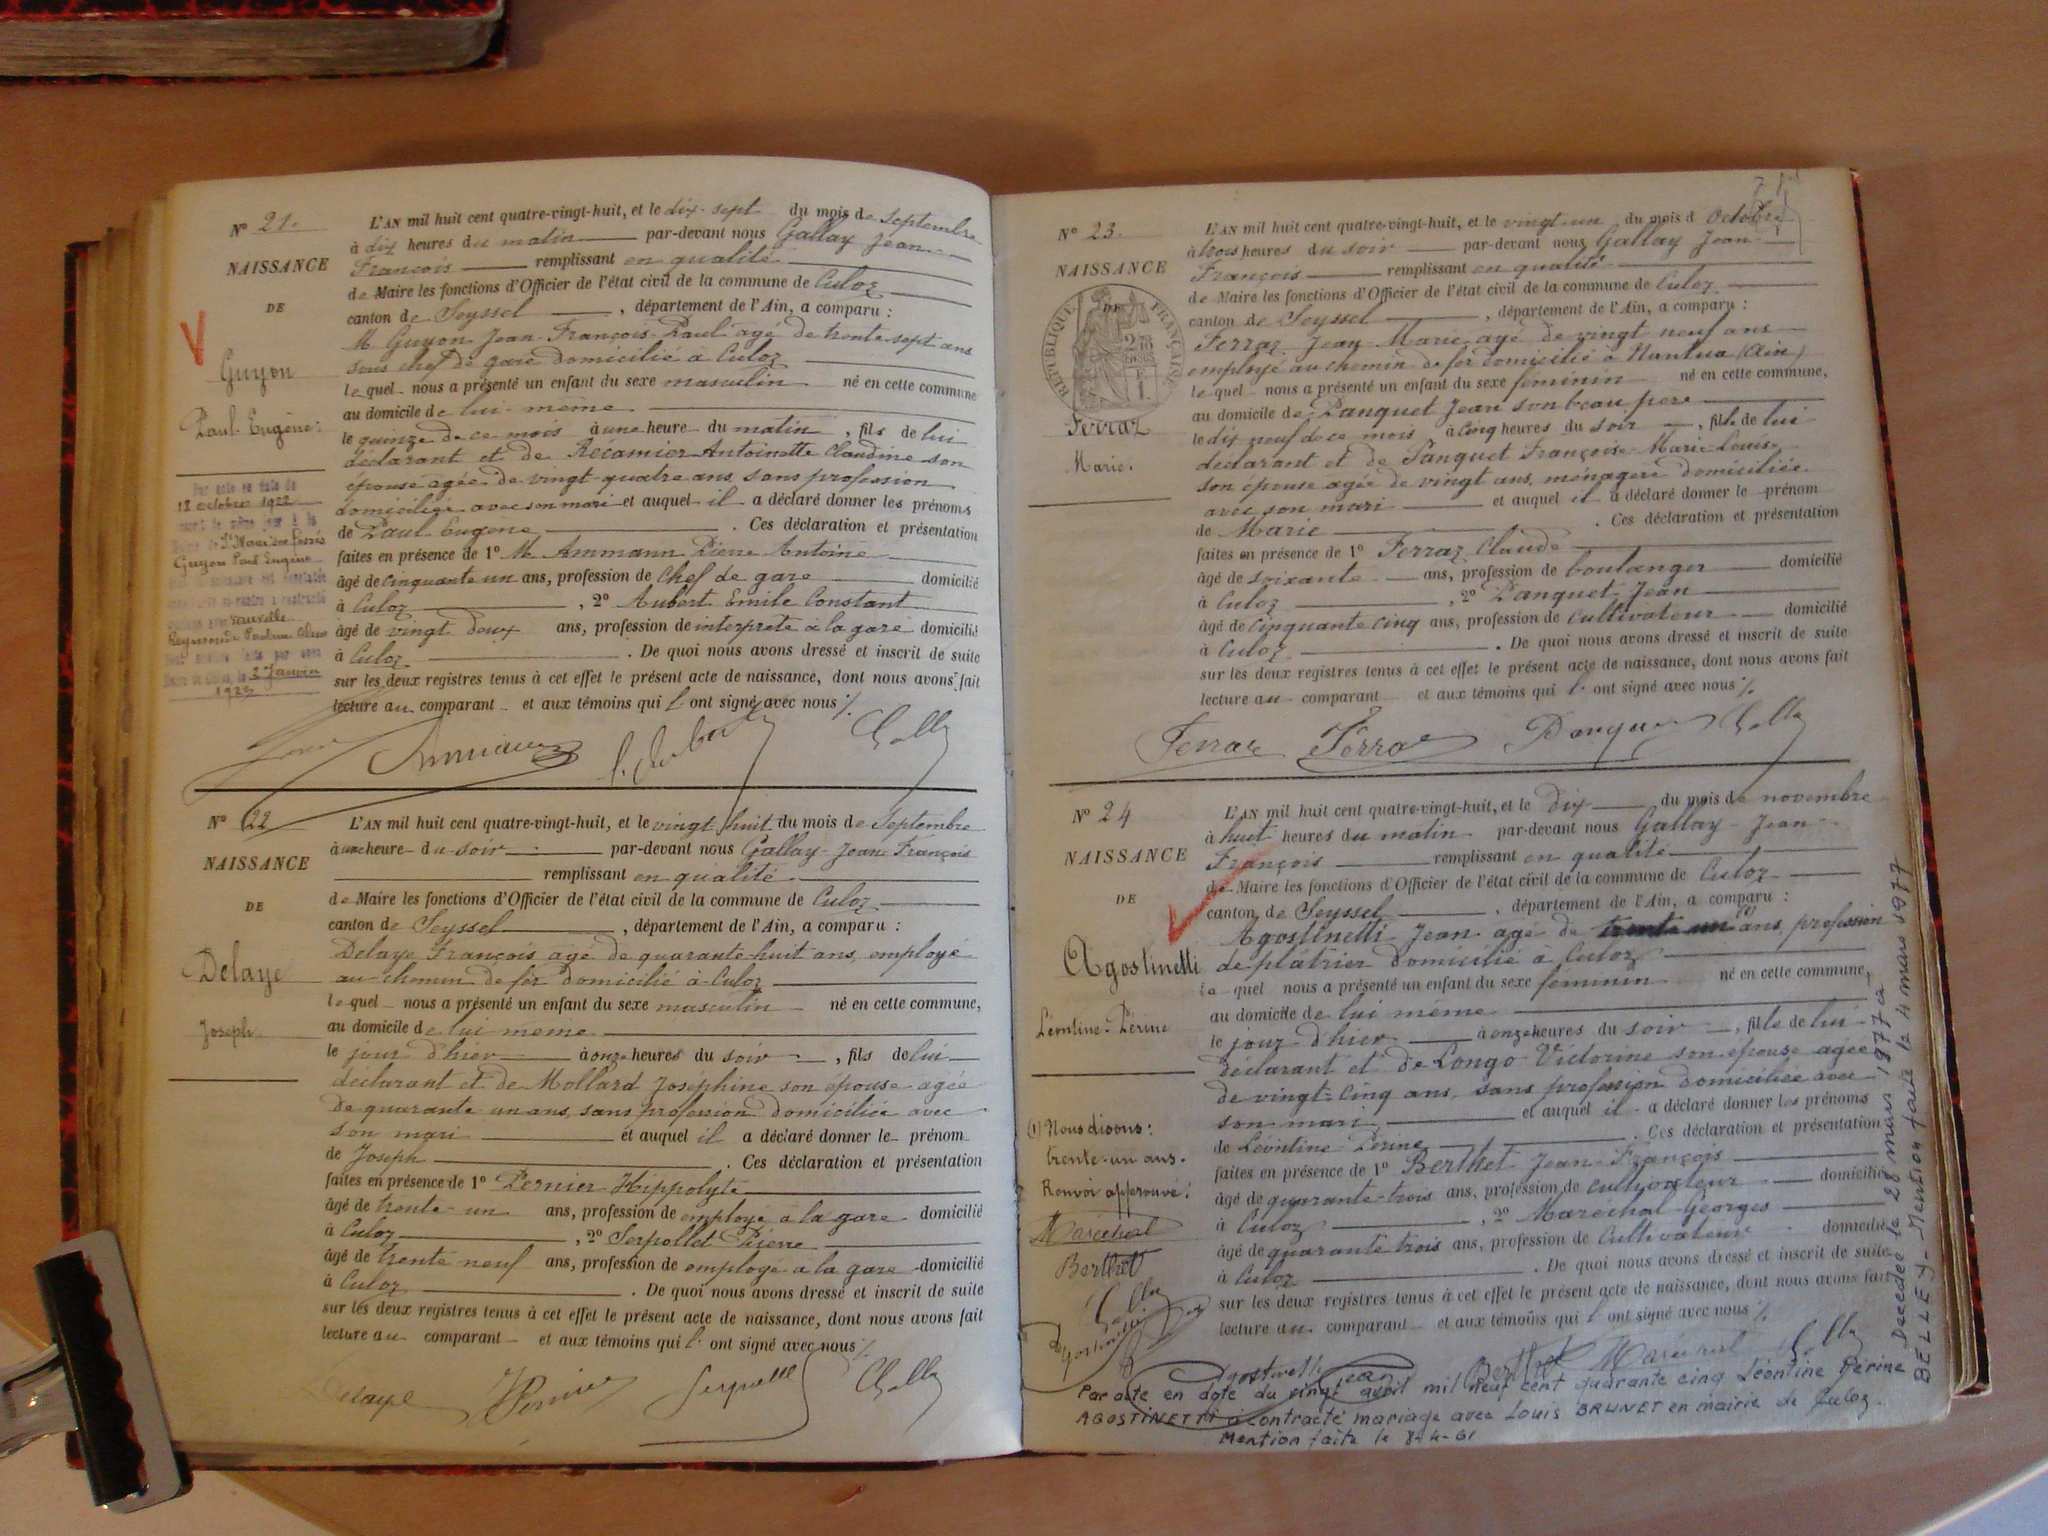 N° 21.
NAISSANCE
DE
Guyon
Paul-Eugène:
L'AN mil huit cent quatre-vingt-huit, et le dix-sept du mois de Septembre
à dix heures du matin par-devant nous Gallay Jean
François remplissant en qualité
de Maire les fonctions d'Officier de l'état civil de la commune de Culoz
canton de Seyssel, département de l'Ain, a comparu :
M Guyon Jean-François-Paul agé de trente sept ans
sous chef de gare domicilié à Culoz
lequel nous a présenté un enfant du sexe masculin né en cette commune
au domicile de lui-même
le quinze de ce mois à une heure du matin, fils de lui
déclarant et de Récamier Antoinette Claudine son
épouse agée de vingt-quatre ans, sans profession
domiciliée avec son mari et auquel il a déclaré donner les prénoms
de Paul Eugène. Ces déclaration et présentation
faites en présence de 1° M. Ammann Pierre Antoine
âgé de cinquante un ans, profession de chef de gare domicilié
à Culoz, 2° Aubert Emile Constant
âgé de vingt deux ans, profession de interprète à la gare domicilié
à Culoz. De quoi nous avons dressé et inscrit de suite
sur les deux registres tenus à cet effet le présent acte de naissance, dont nous avons fait
lecture au comparant et aux témoins qui l'ont signé avec nous
Par acte en date du
18 octobre 1922
Guyon Paul Eugène
2 Janvier
1923
N° 22
NAISSANCE
DE
Delaye
Joseph
L'AN mil huit cent quatre-vingt-huit, et le vingt huit du mois de Septembre
à une heure du soir par-devant nous Gallay Jean François
remplissant en qualité
de Maire les fonctions d'Officier de l'état civil de la commune de Culoz
canton de Seyssel, département de l'Ain, a comparu :
Delaye François agé de quarante-huit ans, employé
au chemin de fer domicilié à Culoz
lequel nous a présenté un enfant du sexe masculin né en cette commune,
au domicile de lui même
le jour d'hier à onze heures du soir, fils de lui
déclarant et de Mollard Joséphine son épouse agée
de quarante un ans, sans profession domiciliée avec
son mari et auquel il a déclaré donner le prénom
de Joseph. Ces déclaration et présentation
faites en présence de 1° Pernier Hippolyte
âgé de trente-un ans, profession de employé à la gare domicilié
à Culoz, 2° Serpollet Pierre
âgé de trente neuf ans, profession de employé à la gare domicilié
à Culoz. De quoi nous avons dressé et inscrit de suite
sur les deux registres tenus à cet effet le présent acte de naissance, dont nous avons fait
lecture au comparant et aux témoins qui l'ont signé avec nous
Delaye
N° 23.
NAISSANCE
DE
RÉPUBLIQUE FRANÇAISE
Ferraz
Marie.
L'AN mil huit cent quatre-vingt-huit, et le vingt-un du mois d Octobre
à trois heures du soir par-devant nous Gallay Jean
François remplissant en qualité
de Maire les fonctions d'Officier de l'état civil de la commune de Culoz
canton de Seyssel, département de l'Ain, a comparu :
Ferraz Jean-Marie agé de vingt neuf ans
employé au chemin de fer domicilié à Nantua (Ain)
lequel nous a présenté un enfant du sexe féminin né en cette commune,
au domicile de Panquet Jean son beau père
le dix neuf de ce mois à cinq heures du soir, fille de lui
déclarant et de Panquet Françoise-Marie-Louise
son épouse agée de vingt ans, ménagère domiciliée
avec son mari et auquel il a déclaré donner le prénom
de Marie. Ces déclaration et présentation
faites en présence de 1° Ferraz Claude
âgé de soixante ans, profession de boulanger domicilié
à Culoz, 2° Panquet Jean
âgé de cinquante cinq ans, profession de cultivateur domicilié
à Culoz. De quoi nous avons dressé et inscrit de suite
sur les deux registres tenus à cet effet le présent acte de naissance, dont nous avons fait
lecture au comparant et aux témoins qui l'ont signé avec nous
Ferraz Ferraz Panquet Gallay
N° 24
NAISSANCE
DE
Agostinetti
Léontine-Périne
L'AN mil huit cent quatre-vingt-huit, et le Dix du mois de novembre
à huit heures du matin par-devant nous Gallay Jean
François remplissant en qualité
de Maire les fonctions d'Officier de l'état civil de la commune de Culoz
canton de Seyssel, département de l'Ain, a comparu :
Agostinetti Jean agé de trente un (1) ans, profession
de plâtrier domicilié à Culoz
le quel nous a présenté un enfant du sexe féminin né en cette commune,
au domicile de lui même
le jour d'hier à onze heures du soir, fille de lui
déclarant et de Longo Victorine son épouse agée
de vingt-cinq ans, sans profession domiciliée avec
son mari et auquel il a déclaré donner les prénoms
de Léontine Périne. Ces déclaration et présentation
faites en présence de 1° Berthet Jean-François
âgé de quarante-trois ans, profession de cultivateur domicilié
à Culoz, 2° Maréchal Georges
âgé de quarante trois ans, profession de cultivateur domicilié
à Culoz. De quoi nous avons dressé et inscrit de suite
sur les deux registres tenus à cet effet le présent acte de naissance, dont nous avons fait
lecture au comparant et aux témoins qui l'ont signé avec nous
(1) Nous disons:
trente-un ans.
Renvoi approuvé:
Maréchal
Berthet
Gallay
Agostinetti Jean Berthet Maréchal Gallay
Par acte en date du vingt avril mil neuf cent quarante cinq Léontine Périne
AGOSTINETTI a contracté mariage avec Louis BRUNET en mairie de Culoz.
Mention faite le 8-4-61
Décédée le 28 mars 1977 à
BELLEY - Mention faite le 4 mars 1977